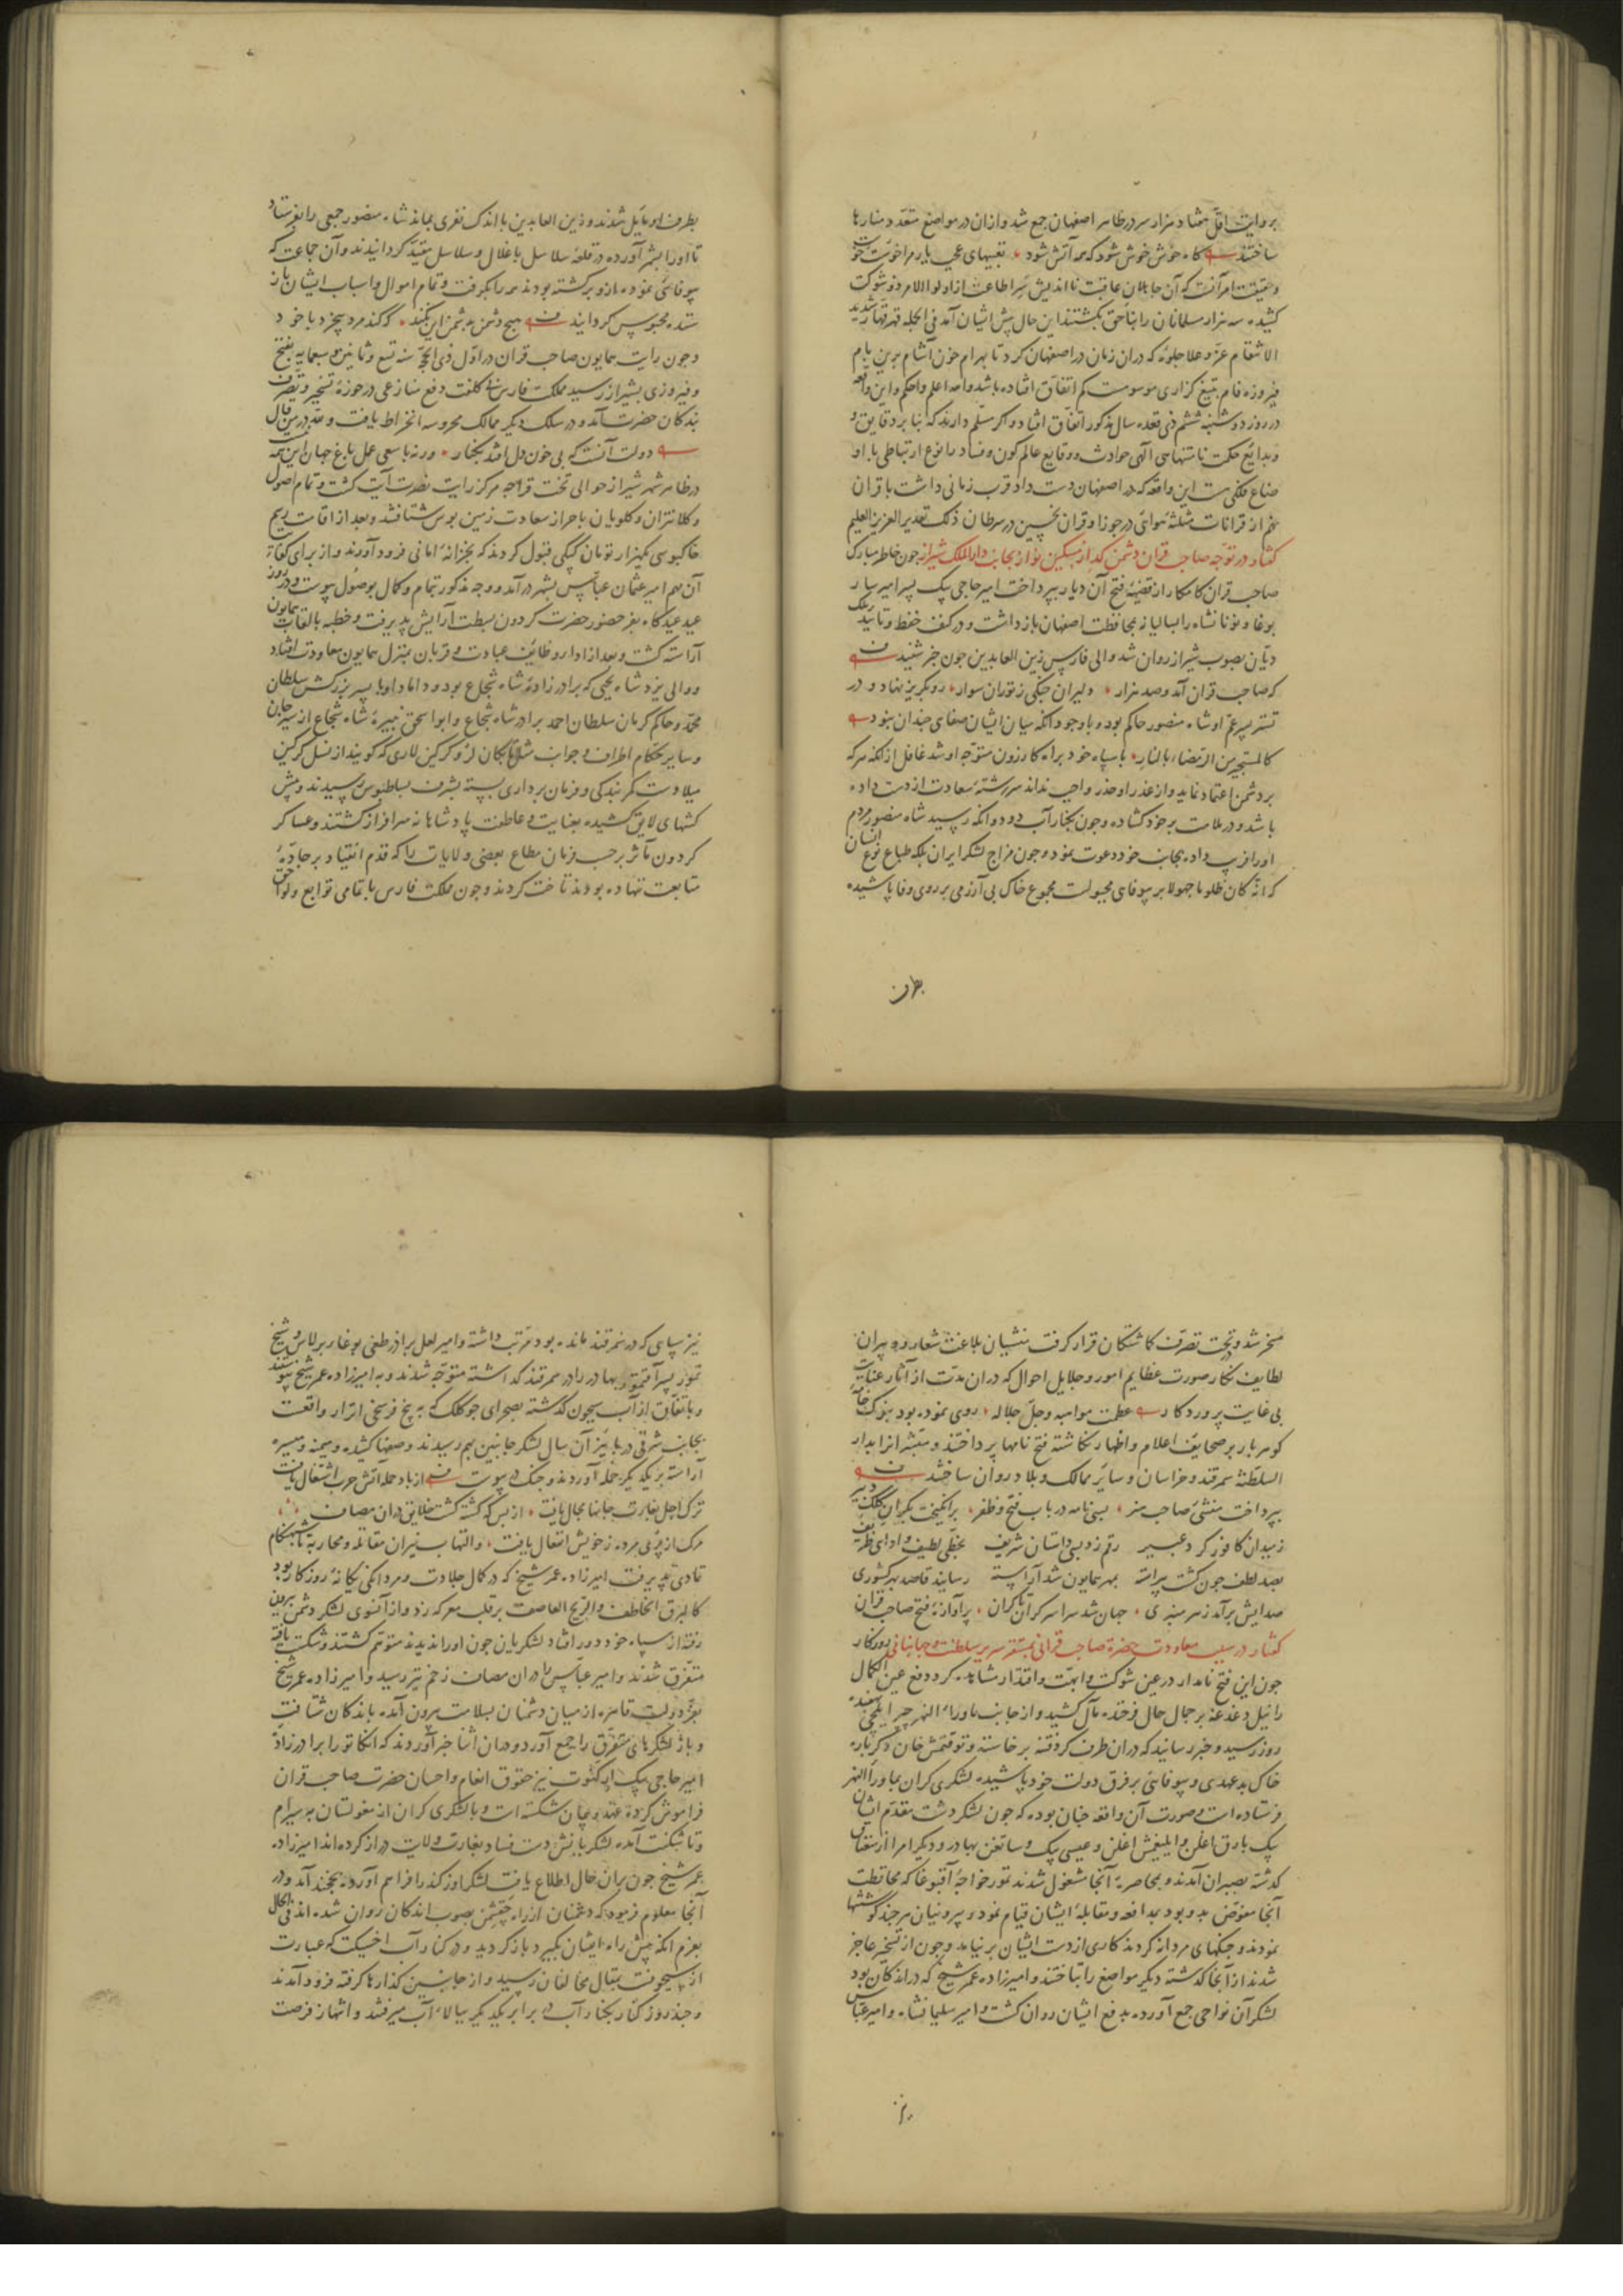 بروایت اقل هفتاد هزار سر در ظاهر اصفهان جمع شد و ازان در مواضع متعدد منارها
ساختند گاه خوش خوش شود که همه آتش شود تعبیهای عجب یار مرا خوست خو
و حقیقت امر آنست که آن جاهلان عاقبت نااندیش سر از اطاعت اولوالامر ذو شوکت
کشیده سه هزار مسلمانان را بناحق بکشتند این حال پیش ایشان آمد فی الجمله قهر قهار شدید
الانتقام عز و علا جلوۀ که دران زمان در اصفهان کرد تا بهرام خون آشام برین بام
فیروزه فام بتیغ گزاری موسومست کم اتفاق افتاده باشد والله اعلم و احکم و این واقعه
در روز دوشنبه ششم ذی قعده سال مذکور اتفاق افتاد و اگر مسلم دارند که بنا بر دقایق و
بدایع حکمت نامتناهی آلهی حوادث و وقایع عالم کون و فساد را نوع ارتباطی باوضاع
فلکی هست این واقعه که در اصفهان دست داد قرب زمانی داشت با قران
نهم از قرانات مثلثه هوائی در جوزا و قران نحسین در سرطان ذلک تقدیر العزیز العلیم
گفتار در توجه صاحب قران دشمن گداز مسکین نواز بجانب دار الملک شیراز جون خاطر مبارک
صاحب قران کامکار از قضیۀ فتح آن دیار بپرداخت امیر حاجی بیک پسر امیر سار
بوغا و نونانشاه را بسالیانه محافظت اصفهان بازداشت و در کنف حفظ و تایید ملک
دیان بصوب شیراز روان شد والی فارس زین العابدین جون خبر شنید
که صاحب قران آمد و صد هزار دلیران جنگی ز توران سوار رو بگریز نهاد و در
تستر پسر عم او شاه منصور حاکم بود و باوجود آنکه میان ایشان صفای جندان نبود
کالمستجیر من الرمضاء بالنار با سپاه خود براه کازرون متوجه او شد غافل ازانکه هر که
بر دشمن اعتماد نماید و از غدر او حذر واجب نداند سررشتۀ سعادت از دست داده
باشد و در ملامت بر خود گشاده و جون بکنار آب دودانکه رسید شاه منصور مردم
او را فریب داده بجانب خود دعوت نمود و جون مزاج لشکر ایران بلکه طباع نوع انسان
که انه کان ظلوما جهولا بر بیوفایی مجبولست مجموع خاک بی آزرمی بر روی وفا پاشیده
بطرف
بطرف او مایل شدند و زین العابدین با اندک نفری بماند شاه منصور جمعی را بفرستاد
تا او را بشهر آورده در قلعۀ سلاسل باغلال و سلاسل مقید گردانیدند و آن جماعت که
بیوفائی نموده ازو برگشته بودند همه را بگرفت و تمام اموال و اسباب ایشان باز
ستده محبوس گردانید هیچ دشمن به دشمن این نکند که کند مرد بیخرد با خود
و جون رایت همایون صاحب قران در اول ذی الحجه سنه تسع و ثمانین و سبعمایه بفتح
و فیروزی بشیراز رسید مملکت فارس بی کلفت دفع منازعی در حوزۀ تسخیر و تصرف
بندگان حضرت آمد و در سلک دیگر ممالک محروسه انخراط یافت و لله در من قال
دولت آنست که بی خون دل افتد بکنار ورنه با سعی عمل باغ جنان این همه نیست
در ظاهر شهر شیراز حوالی تخت قراجه مرکز رایت نصرت آیت گشت و تمام اصول
و کلانتران و کلویان باحراز سعادت زمین بوس شتافتند و بعد از اقامت رسم
خاکبوسی یکهزار تومان کپکی قبول کردند که بخزانۀ امانی فرود آورند و از برای کفایت
آن مهم امیر عثمان عباس بشهر درآمد و وجه مذکور بتمام و کمال بوصول پیوست و در روز
عید عیدگاه بفر حضور حضرت گردون بسطت آرایش پذیرفت و خطبه بالقاب همایون
آراسته گشت و بعد از ادای وظایف عبادت و قربان بمنزل همایون معاودت افتاد
و والی یزد شاه یحیی که برادرزادۀ شاه شجاع بود و داماد او با پسر بزرگش سلطان
محمد و حاکم کرمان سلطان احمد برادر شاه شجاع و ابو اسحق نبیرۀ شاه شجاع از سیرجان
و سایر حکام اطراف و جوانب مثل اتابکان لر و گرگین لاری که گویند از نسل گرگین
میلادست کمر بندگی و فرمان برداری بسته بشرف بساطبوس رسیدند و پیش
کشهای لایق کشیده بعنایت و عاطفت پادشاهانه سرافراز گشتند و عساکر
گردون مآثر برحسب فرمان مطاع بعضی ولایات را که قدم انقیاد بر جادۀ
متابعت ننهاده بودند تاخت کردند و جون مملکت فارس با تمامی توابع و لواحق
مسخر شد و تحت تصرف گماشتگان قرار گرفت منشیان بلاغت شعار و دبیران
لطایف نگار صورت عظایم امور و جلایل احوال که دران مدت از آثار عنایت
بی غایت پروردگار عظمت مواهبه و جل جلاله روی نموده بود بنوک خامه
گوهر بار بر صحایف اعلام و اظهار نگاشته فتح نامها پرداختند و مبشرانرا بدار
السلطنة سمرقند و خراسان و سایر ممالک و بلاد روان ساختند
بپرداخت منشی صاحب هنر بسی نامه در باب فتح و ظفر برانگیخت بکران کلک دبیر
ز میدان کافور گرد عبیر رقم زد بسی داستان شریف بخطی لطیف و ادای ظریف
بصد لطف جون گشت پیراسته بمهر همایون شد آراسته رسانید قاصد بهر کشوری
صدایش برآمد ز هر منبری جهان شد سراسر کران تا کران پر آوازۀ فتح صاحب قران
گفتار در سبب معاودت حضرة صاحب قرانی بمستقر سریر سلطنت و جهانبانی روزگار
جون این فتح نامدار در عین شوکت و ابهت و اقتدار مشاهده کرد دفع عین الکمال
را نیل دغدغه بر جمال حال فرخنده مآل کشید و از جانب ماوراء النهر جبر ایلچی بهفده
روز رسید و خبر رسانید که دران طرف گرد فتنه برخاسته و توقتمش خان دگرباره
خاک بدعهدی و بیوفائی بر فرق دولت خود پاشیده لشکری گران بماوراالنهر
فرستاده است و صورت آن واقعه جنان بوده که جون لشکر دشت مقدم ایشان
بیک یارق اغلن و ایلیغمش اغلن و عیسی بیک و ساتغن بهادر و دیگر امرا از سقناق
گذشته بصبران آمدند و بمحاصرۀ آنجا مشغول شدند تمور خواجۀ آقبوغا که محافظت
آنجا مفوض بدو بود بمدافعه و مقابلۀ ایشان قیام نمود و بیرونیان هرجند کوششها
نمودند و جنگهای مردانه کردند کاری از دست ایشان برنیامد و جون از تسخیر عاجز
شدند از آنجا گذشته دیگر مواضع را بتاختند و امیرزاده عمر شیخ که در اندکان بود
لشکر آن نواحی جمع آورده بدفع ایشان روان گشت و امیر سلیمانشاه و امیر عباس
نیز
نیز سپاهی که در سمرقند مانده بود مرتب داشته و امیر لعل برادر طغی بوغا برلاس و شیخ
تمور پسر آقتمور بهادر را در سمرقند گذاشته متوجه شدند و به امیرزاده عمر شیخ پیوستند
و باتفاق از آب سیحون گذشته بصحرای جوکلک که به پنج فرسخی اترار واقعست
بجانب شرقی در پاییز آن سال لشکر جانبین بهم رسیدند و صفها کشیده و میمنه و میسره
آراسته بر یکدیگر حمله آوردند و جنگ در پیوست از باد حمله آتش حرب اشتعال یافت
ترک اجل بغارت جانها مجال یافت از بس که کشته گشت خلایق دران مصاف
مرگ از پی مرده ز خویش انفعال یافت و التهاب نیران مقاتله و محاربه تا شبنکام
تمادی پذیرفت امیرزاده عمر شیخ که در کمال جلادت و مردانگی یگانۀ روزگار بود
کالبرق الخاطف و الریح العاصف بر قلب معرکه زد و از آنسوی لشکر دشمن بیرون
رفته از سپاه خود دور افتاد لشکریان جون او را ندیدند متوهم گشتند و شکست یافته
متفرق شدند و امیر عباس را دران مصاف زخم تیر رسید و امیرزاده عمر شیخ
بفر دولت قاهره از میان دشمنان بسلامت بیرون آمده باندکان شتافت
و باز لشکرهای متفرق را جمع آورد و دران اثنا خبر آوردند که انکاتورا برادرزادۀ
امیر حاجی بیک ایرکنوت نیز حقوق انعام و احسان حضرت صاحب قران
فراموش کرده عهد و پیمان شکسته است و با لشکری گران از مغولستان به سیرام
و تاشکنت آمده لشکریانش دست فساد بغارت ولایت دراز کرده اند امیرزاده
عمر شیخ جون بران حال اطلاع یافت لشکر اوزکند را فراهم آورده بخجند آمد و در
آنجا معلوم فرمود که دشمنان از راه جقشمن بصوب اندکان روان شده اند فی الحال
بعزم آنکه پیش راه ایشان بگیرد باز گردید و در کنار آب اخسیکت که عبارت
از سیحونست بقتال مخالفان رسید و از جانبین گذارها گرفته فرود آمدند
و جند روز کنار بکنار آب در برابر یکدیگر ببالاء آب میرفتند و انتهاز فرصت